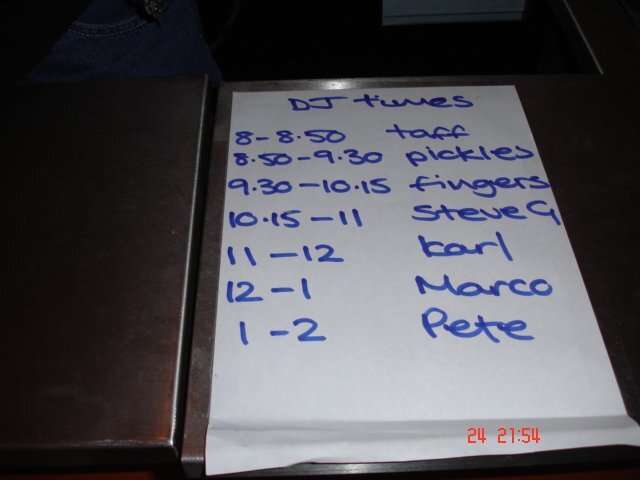 DJ times
8-8.50 taff
8.50-9.30 pickles
9.30-10.15 fingers
10.15-11 Steve G
11-12 Karl
12-1 Marco
1-2 Pete
24 21:54